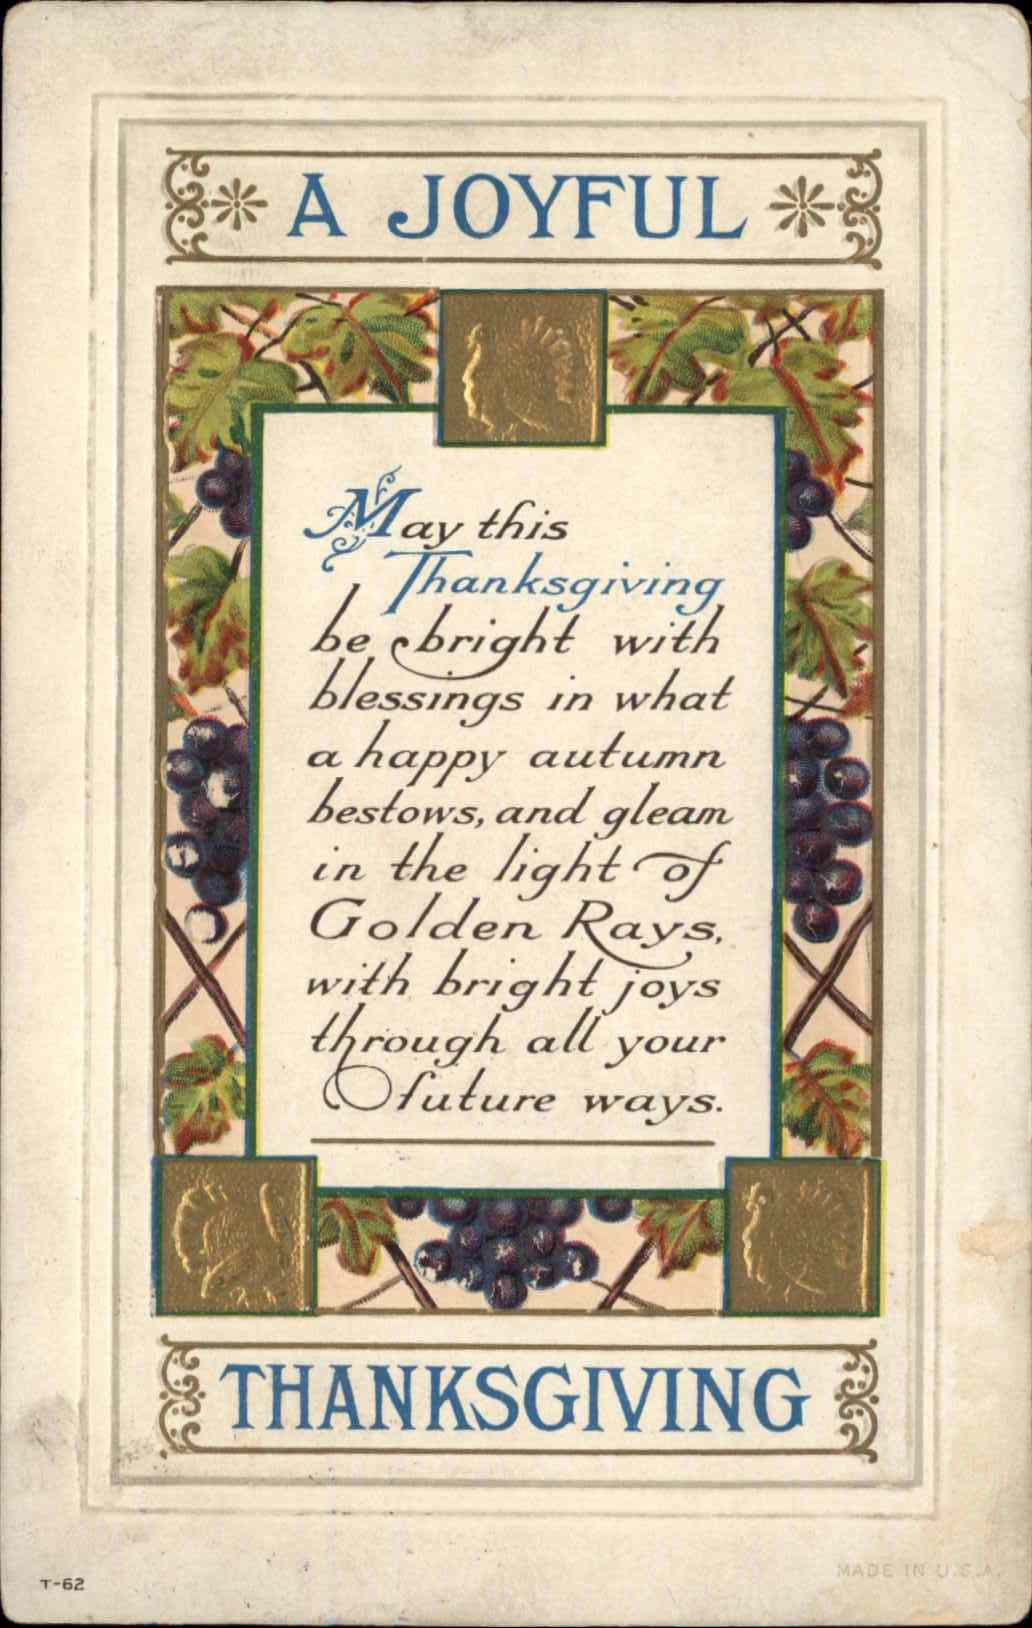 A JOYFUL
May this
Thanksgiving
be bright with
blessings in what
a happy autumn
bestows, and gleam
in the light of
Golden Rays,
with bright joys
through all your
future ways.
THANKSGIVING
T-62
MADE IN U.S.A.